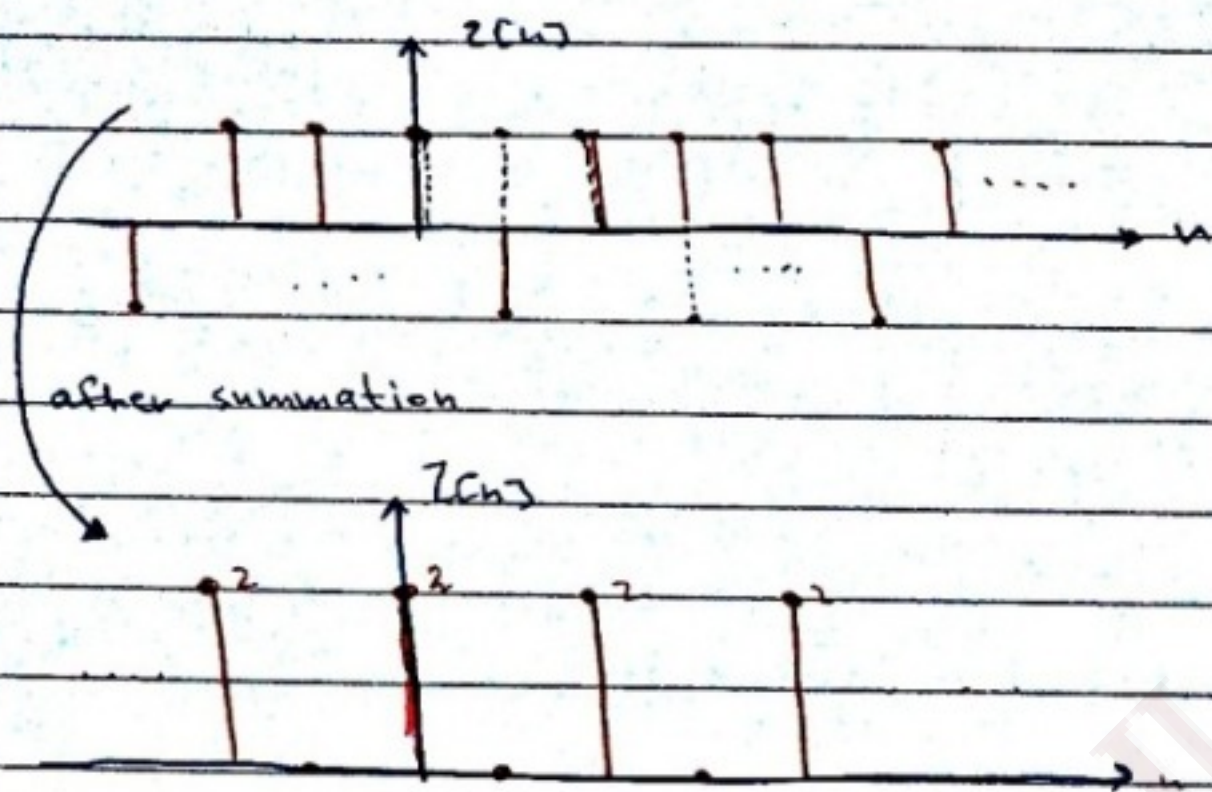 z[n]
....
n
.... ....
after summation
Z[n]
2 2 2 2
..... .....
n